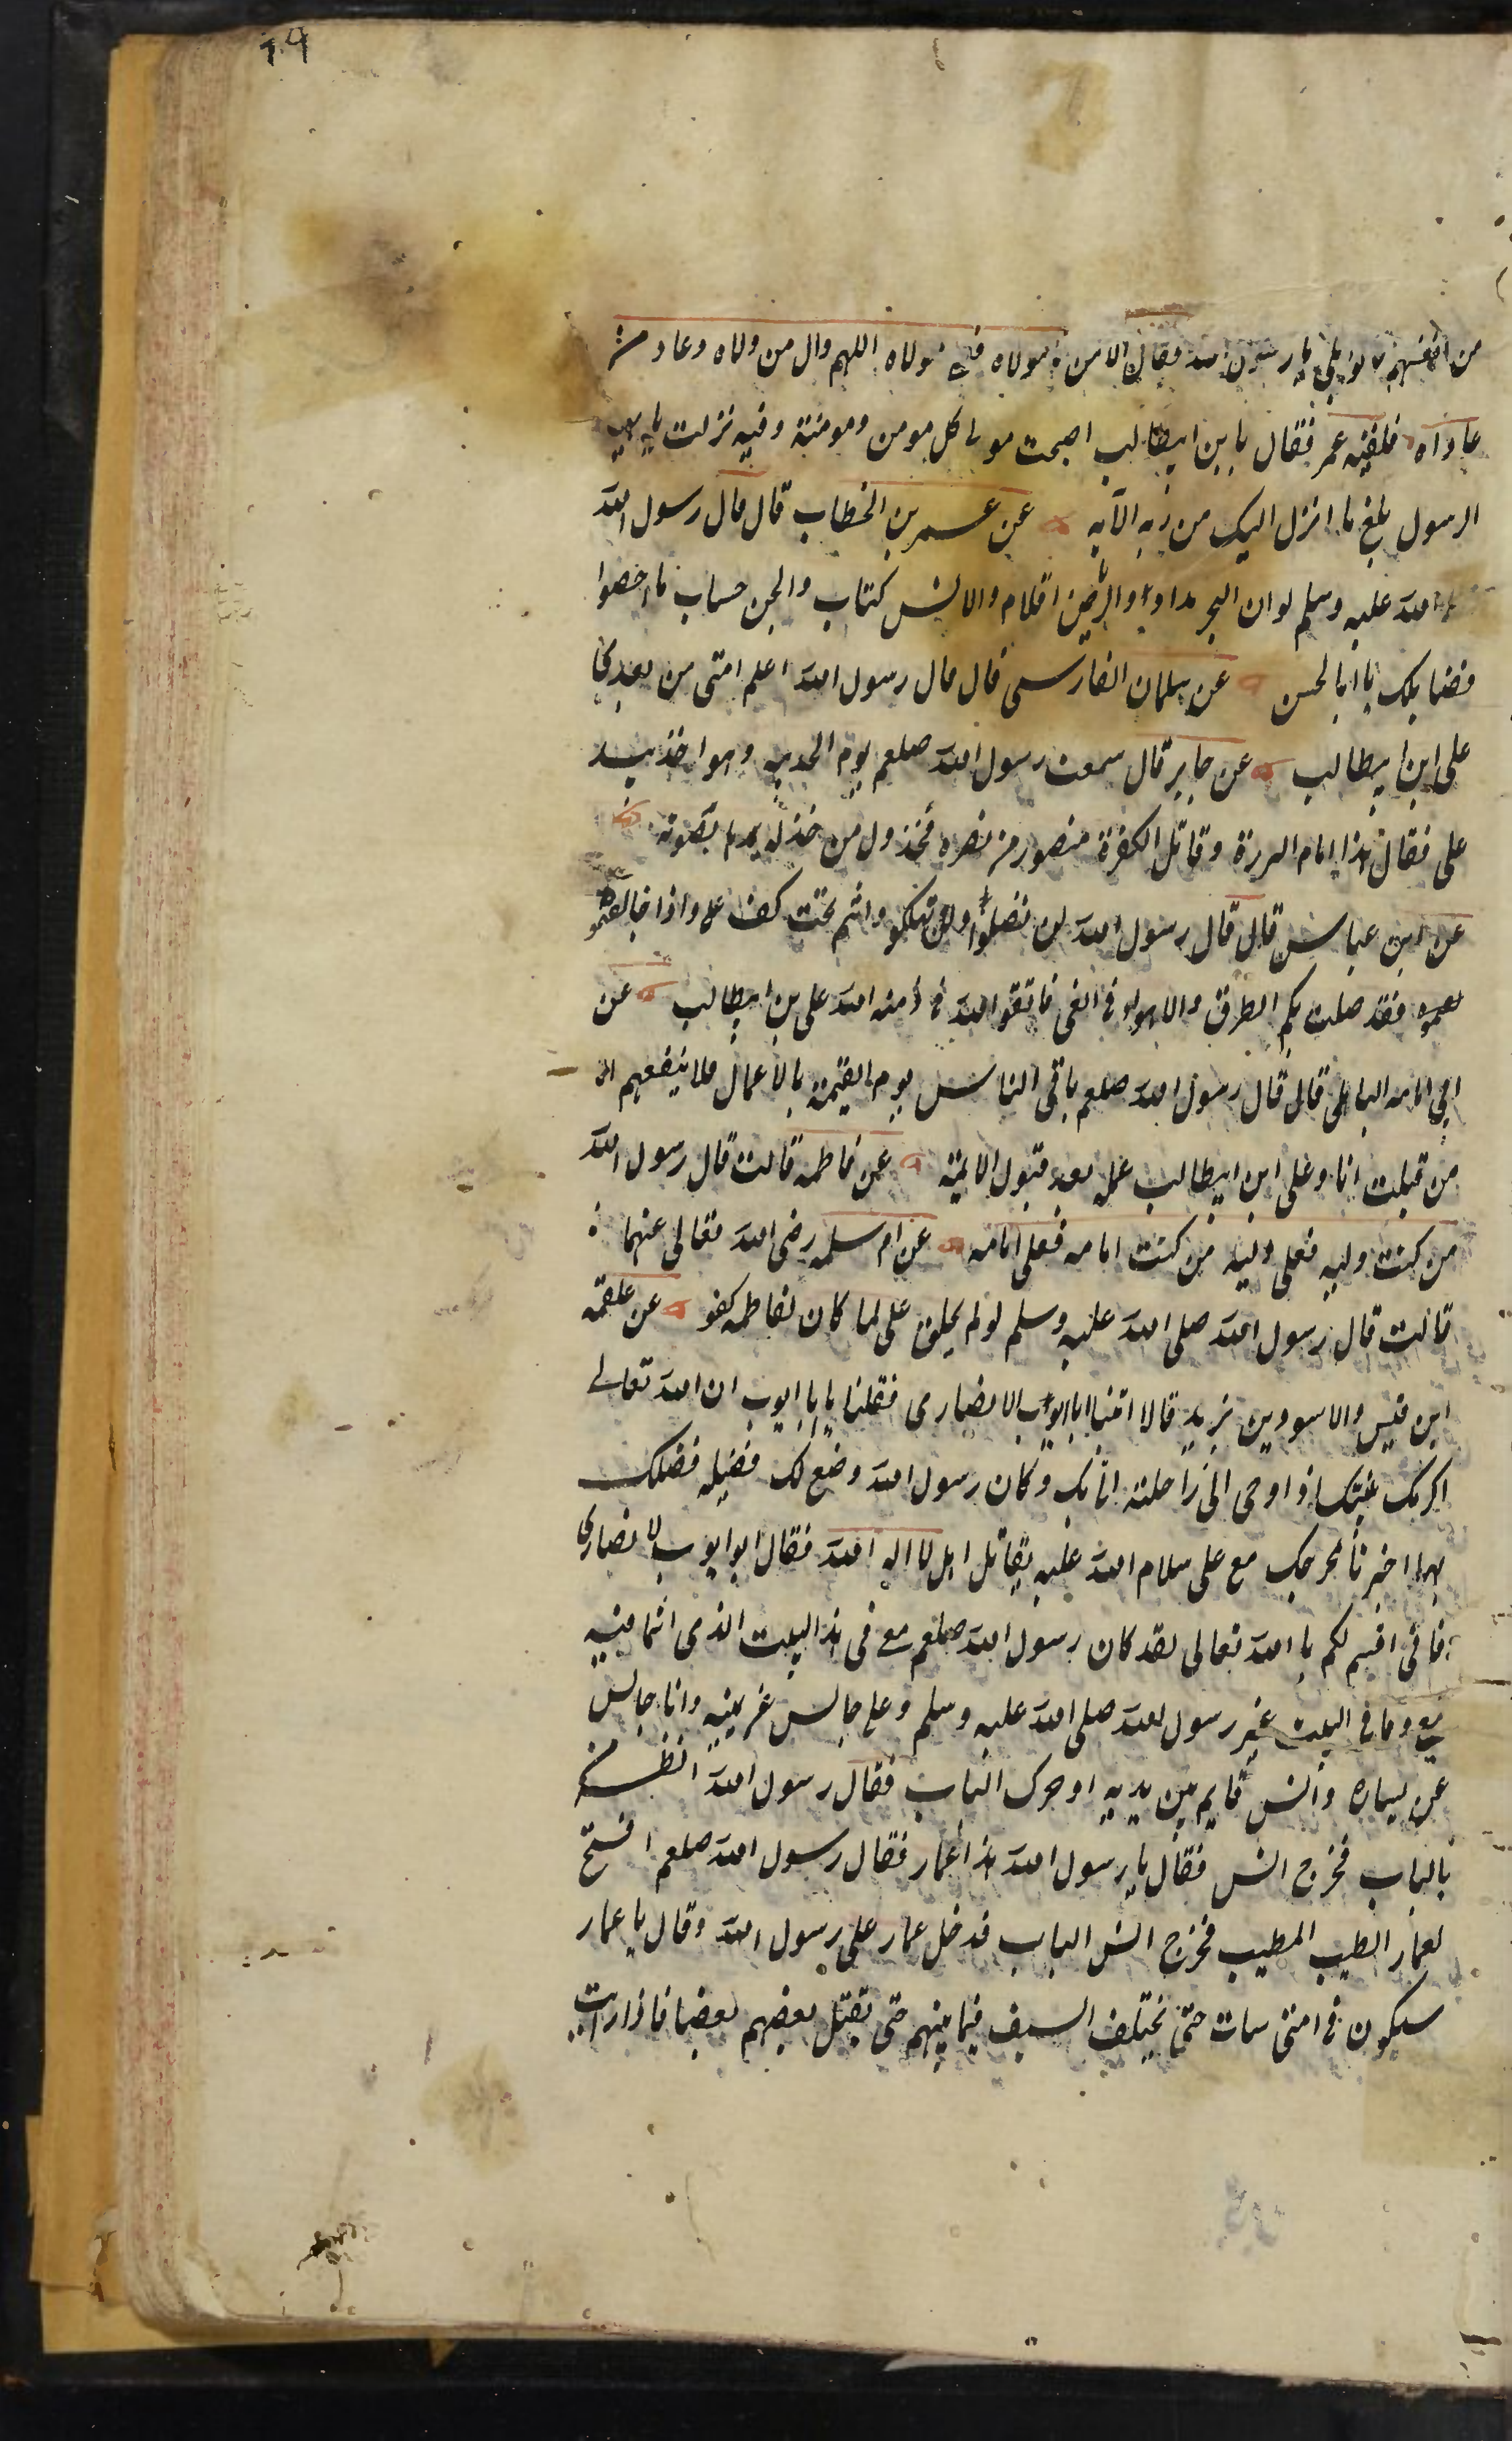 من انفسهم قالوا بلى يا رسول الله فقال الا من مولاه فعلى مولاه اللهم وال من والاه وعاد من
عاداه فلقيه عمر فقال يا بن ابيطالب اصبحت مولى كل مومن ومومنة وفيه نزلت يا ايها
الرسول بلغ ما انزل اليك من ربه الآيه عن عمر بن الخطاب قال قال رسول الله
الله عليه وسلم لو ان البحر مدادا والرياض اقلام والانس كتاب والجن حساب ما احصوا
فضايلك يا ابا الحسن عن سلمان الفارسى قال قال رسول الله اعلم امتى من بعدى
على ابن ابيطالب عن جابر قال سمعت رسول الله صلعم يوم الحديبيه وهو اخذ بيد
على فقال هذا امام البررة وقاتل الكفرة منصور من نصره مخذول من خذله يمد بها صوته
عن ابن عباس قال قال رسول الله لن تضلوا ولن تهلكو وانتم تحت كف على واذا خالفتموه
فقد ضلت بكم الطرق والاهوا فى الغى فاتقوا الله فى ذمة الله على بن ابيطالب عن
ابى امامه الباهلى قال قال رسول الله صلعم ياتى الناس يوم القيمة بالاعمال فلا ينفعهم الا
من قبلت انا وعلى ابن ابيطالب عمله بعد قبول عن فاطمه قالت قال رسول الله
من كنت وليه فعلى وليه من كنت امامه فعلى امامه عن ام سلمه رضى الله تعالى عنهما
قالت قال رسول الله صلى الله عليه وسلم لو لم يخلق على لما كان لفاطمه كفو عن علقمه
ابن قيس والاسود بن يزيد قالا اتينا ابا ايوب الانصارى فقلنا يا ابا ايوب ان الله تعالى
اكرمك بنبيك اذ اوحى الى راحلته اناك وكان رسول الله وضع لك فضيله فضلك
بها اخبرنا بمخرجك مع على سلام الله عليه يقاتل اهل لا اله الا الله فقال ابو ايوب الانصارى
فانى اقسم لكم با الله تعالى لقد كان رسول الله صلعم معى فى هذا البيت الذى انتما فيه
معى وما فى البيت غير رسول الله صلى الله عليه وسلم وعلى جالس عن يمينه وانا جالس
عن يساره وانس قايم بين يديه اذ حرك الباب فقال رسول الله انظر من
بالباب فخرج انس فقال يا رسول الله هذا عمار فقال رسول الله صلعم افتح
لعمار الطيب المطيب فخرج انس الباب فدخل عمار على رسول الله وقال يا عمار
سيكون فى امتى حتى يختلف السيف فيما بينهم حتى يقتل بعضهم بعضا فاذا رايت